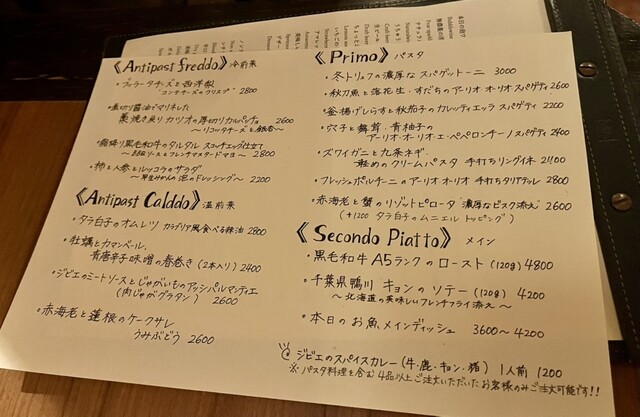 《Antipast freddo》冷前菜
・ブッラータチーズと西洋梨
"コンテチーズのクリスプ" 2800
・燻切り醤油でマリネした
藁焼き戻りカツオの厚切りカルパッチョ 2600
～リコッタチーズと
・霜降り黒毛和牛のタルタル スコッチエッグ仕立て
～BBQソースとフレンチマスタードマヨ～ 2800
・柿と人参とルッコラのサラダ
のドレッシング～ 2200
《Antipast Calddo》温前菜
・タラ白子のオムレツ カラブリア風食べる辣油 2800
・牡蠣とカマンベール、
青唐辛子味噌の春巻き(2本入り) 2400
・ジビエのミートソースとじゃがいものアッシパルマンティエ
(肉じゃがグラタン) 2600
・赤海老と蓮根のケークサレ
うみぶどう 2600
《Primo》パスタ
・冬トリュフの濃厚な スパゲットーニ 3000
・秋刀魚と落花生、すだちのアーリオ オーリオ スパゲティ 2600
・釜揚げしらすと秋茄子の カレッティエッラ スパゲティ 2200
・穴子と舞茸、青柚子の
アーリオ・オーリオ・エ・ペペロンチーノ スパゲティ 2400
・ズワイガニと九条ネギ、
のクリームパスタ 手打ちリングイネ 2400
・フレッシュポルチーニのアーリオ オーリオ 手打ちタリアテッレ 2800
・赤海老と蟹のリゾットピロータ "濃厚なビスク添え" 2600
(+1200 タラ白子のムニエル トッピング)
《Secondo Piatto》メイン
・黒毛和牛 A5ランクの ロースト (120g) 4800
・千葉県鴨川 キョンの ソテー (120g) 4200
～北海道の美味しいフレンチフライ添え～
・本日のお魚メインディッシュ 3600～4200
ジビエのスパイスカレー (牛・鹿・キョン・猪) 1人前 1200
※パスタ料理を含む4品以上ご注文いただいたお客様のみご注文可能です!!